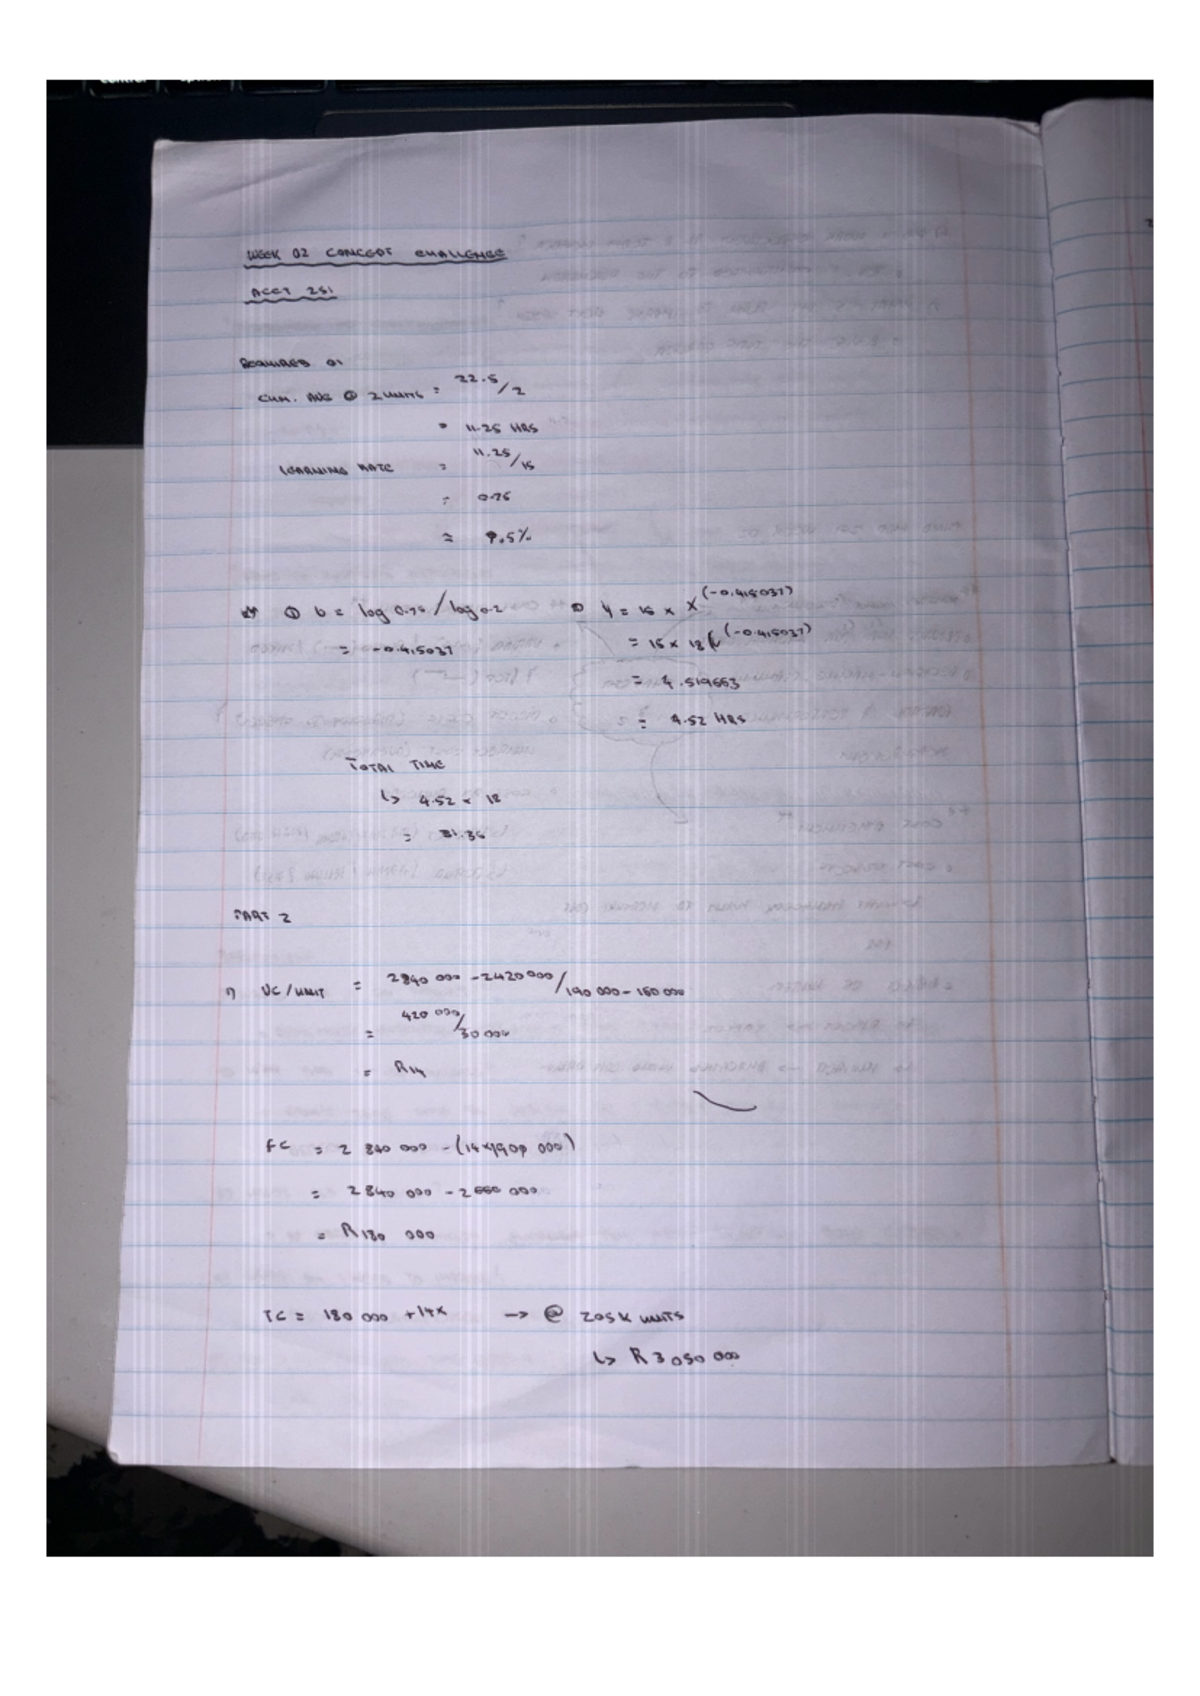 WEEK 02 CONCEPT CHALLENGE
ACCT 251
REQUIRED 01
CUM. AVG @ 2 UNITS = 22.5/2
= 11.25 HRS
LEARNING RATE = 11.25/15
= 0.75
≈ 9.5%
① b = log 0.75 / log 0.2
= -0.415037
② Y = 15 × X^(-0.415037)
= 15 × 18^(-0.415037)
= 4.519553
= 4.52 HRS
TOTAL TIME
↳ 4.52 × 18
= 81.36
PART 2
1) VC/UNIT = 2840 000 - 2420 000/190 000 - 160 000
= 420 000/30 000
= R14
FC = 2 840 000 - (14×190 000)
= 2840 000 - 2660 000
= R180 000
TC = 180 000 + 14x → @ 205K UNITS
↳ R3 050 000